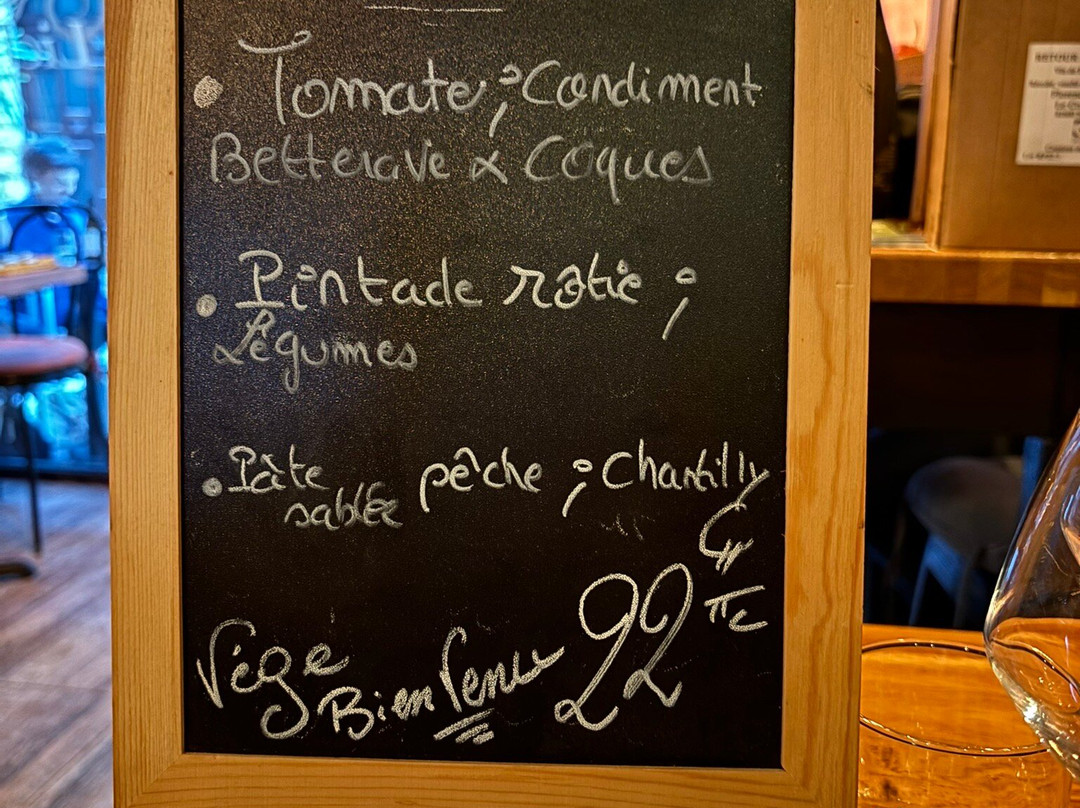 • Tomate ; Condiment
Betterave & Coques
• Pintade rôtie ;
Légumes
• Pâte sablée pêche ; Chantilly
22 € TTC
Végé Bienvenu
RETOUR